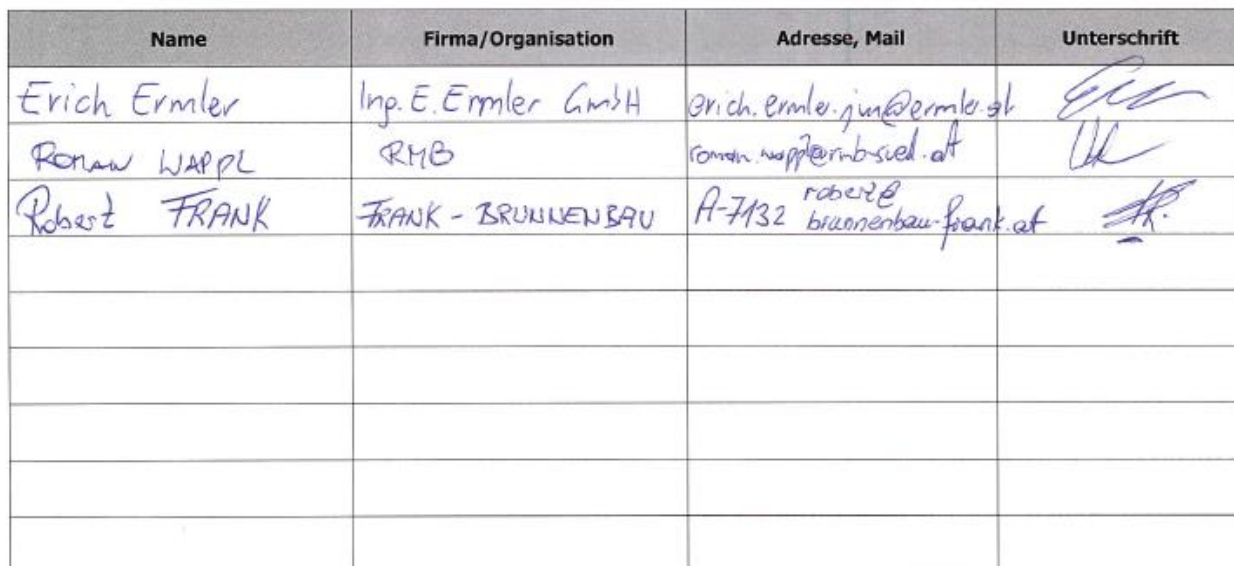 Name Firma/Organisation Adresse, Mail Unterschrift
Erich Ermler Ing. E. Ermler GmbH erich.ermler.jun@ermler.at
Roman WAPPL RMB roman.wappl@rmb-sued.at
Robert FRANK FRANK - BRUNNENBAU A-7132 robert@
brunnenbau-frank.at